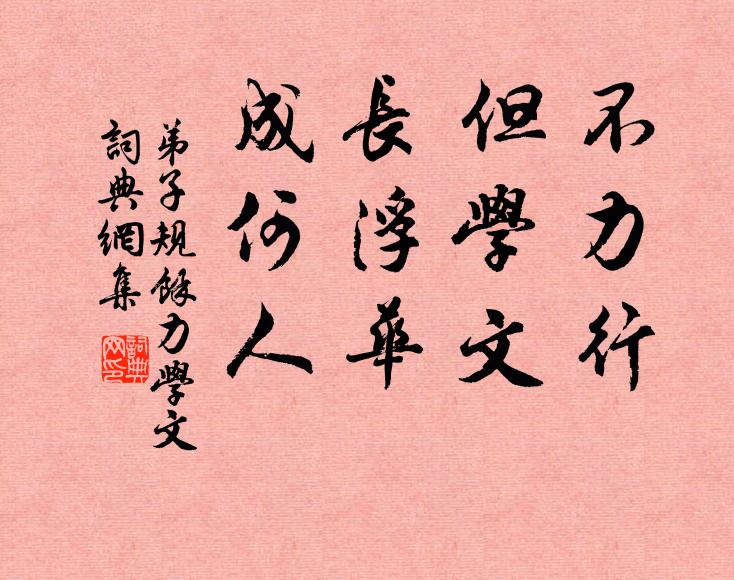 不力行
但學文
長浮華
成何人
弟子規餘力學文
詞典網集
詞典網印